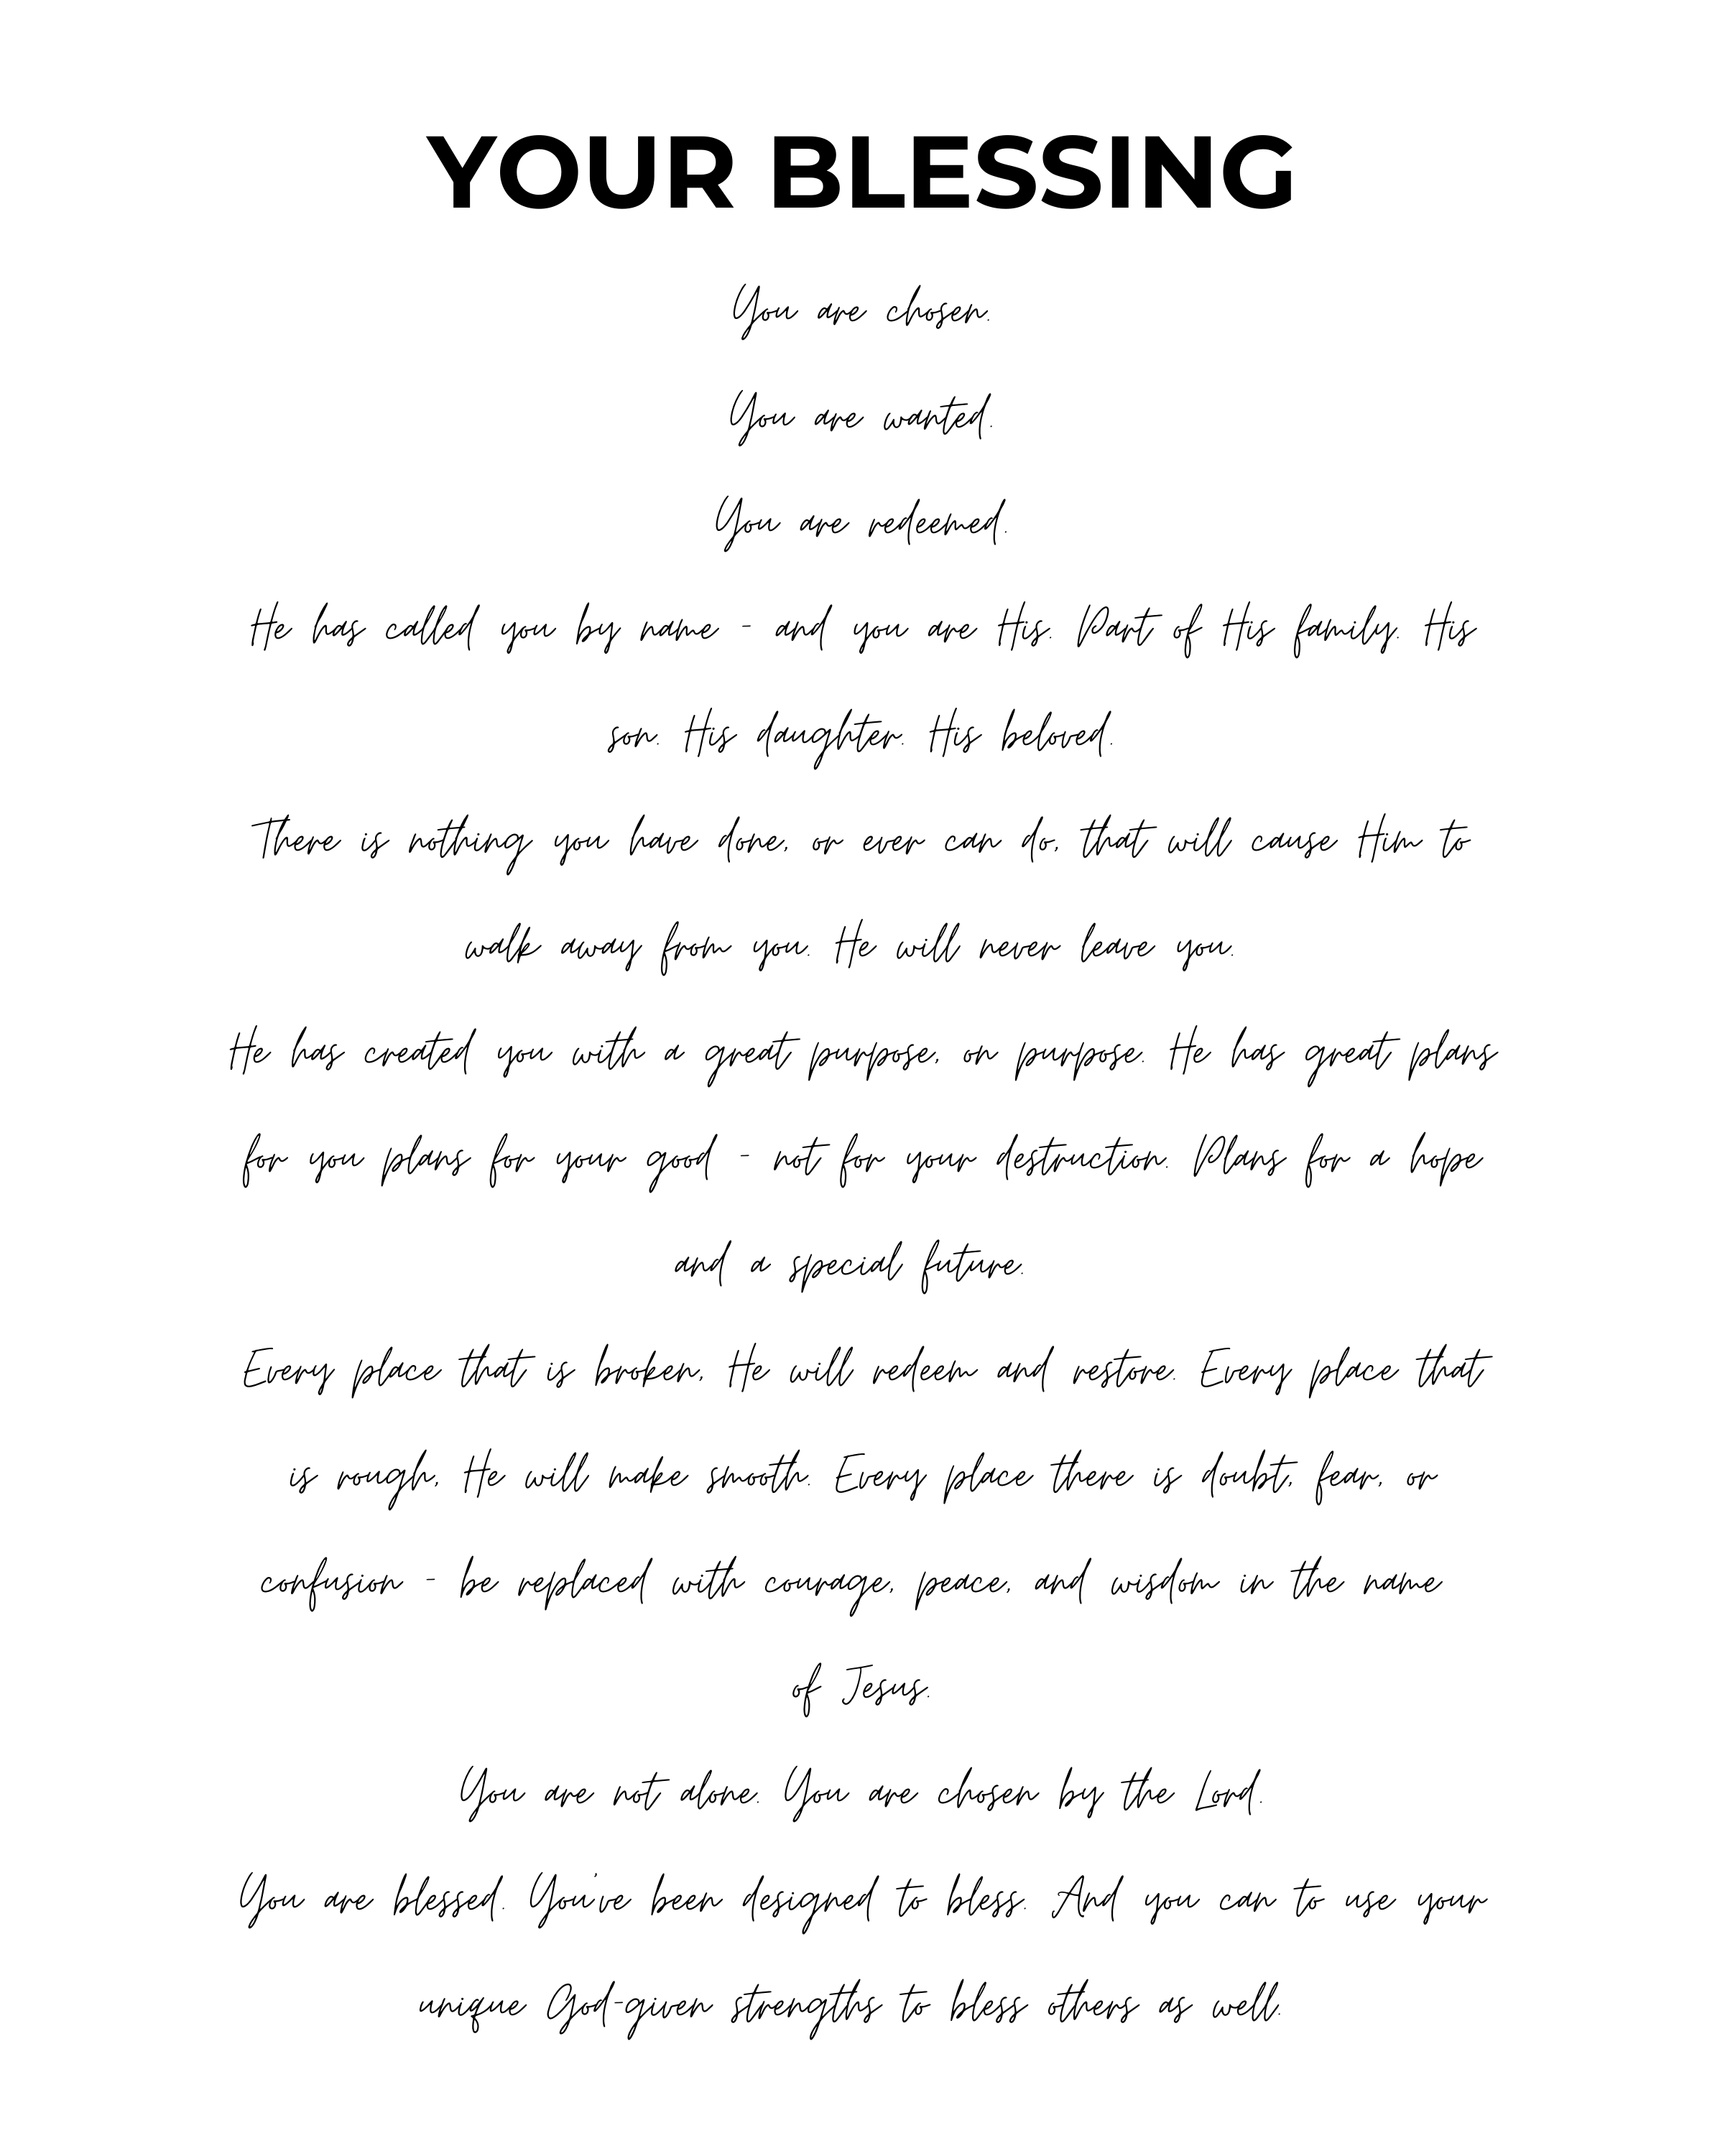 YOUR BLESSING
You are chosen.
You are wanted.
You are redeemed.
He has called you by name - and you are His. Part of His family. His
son. His daughter. His beloved.
There is nothing you have done, or ever can do, that will cause Him to
walk away from you. He will never leave you.
He has created you with a great purpose, on purpose. He has great plans
for you plans for your good - not for your destruction. Plans for a hope
and a special future.
Every place that is broken, He will redeem and restore. Every place that
is rough, He will make smooth. Every place there is doubt, fear, or
confusion - be replaced with courage, peace, and wisdom in the name
of Jesus.
You are not alone. You are chosen by the Lord.
You are blessed. You've been designed to bless. And you can to use your
unique God-given strengths to bless others as well.